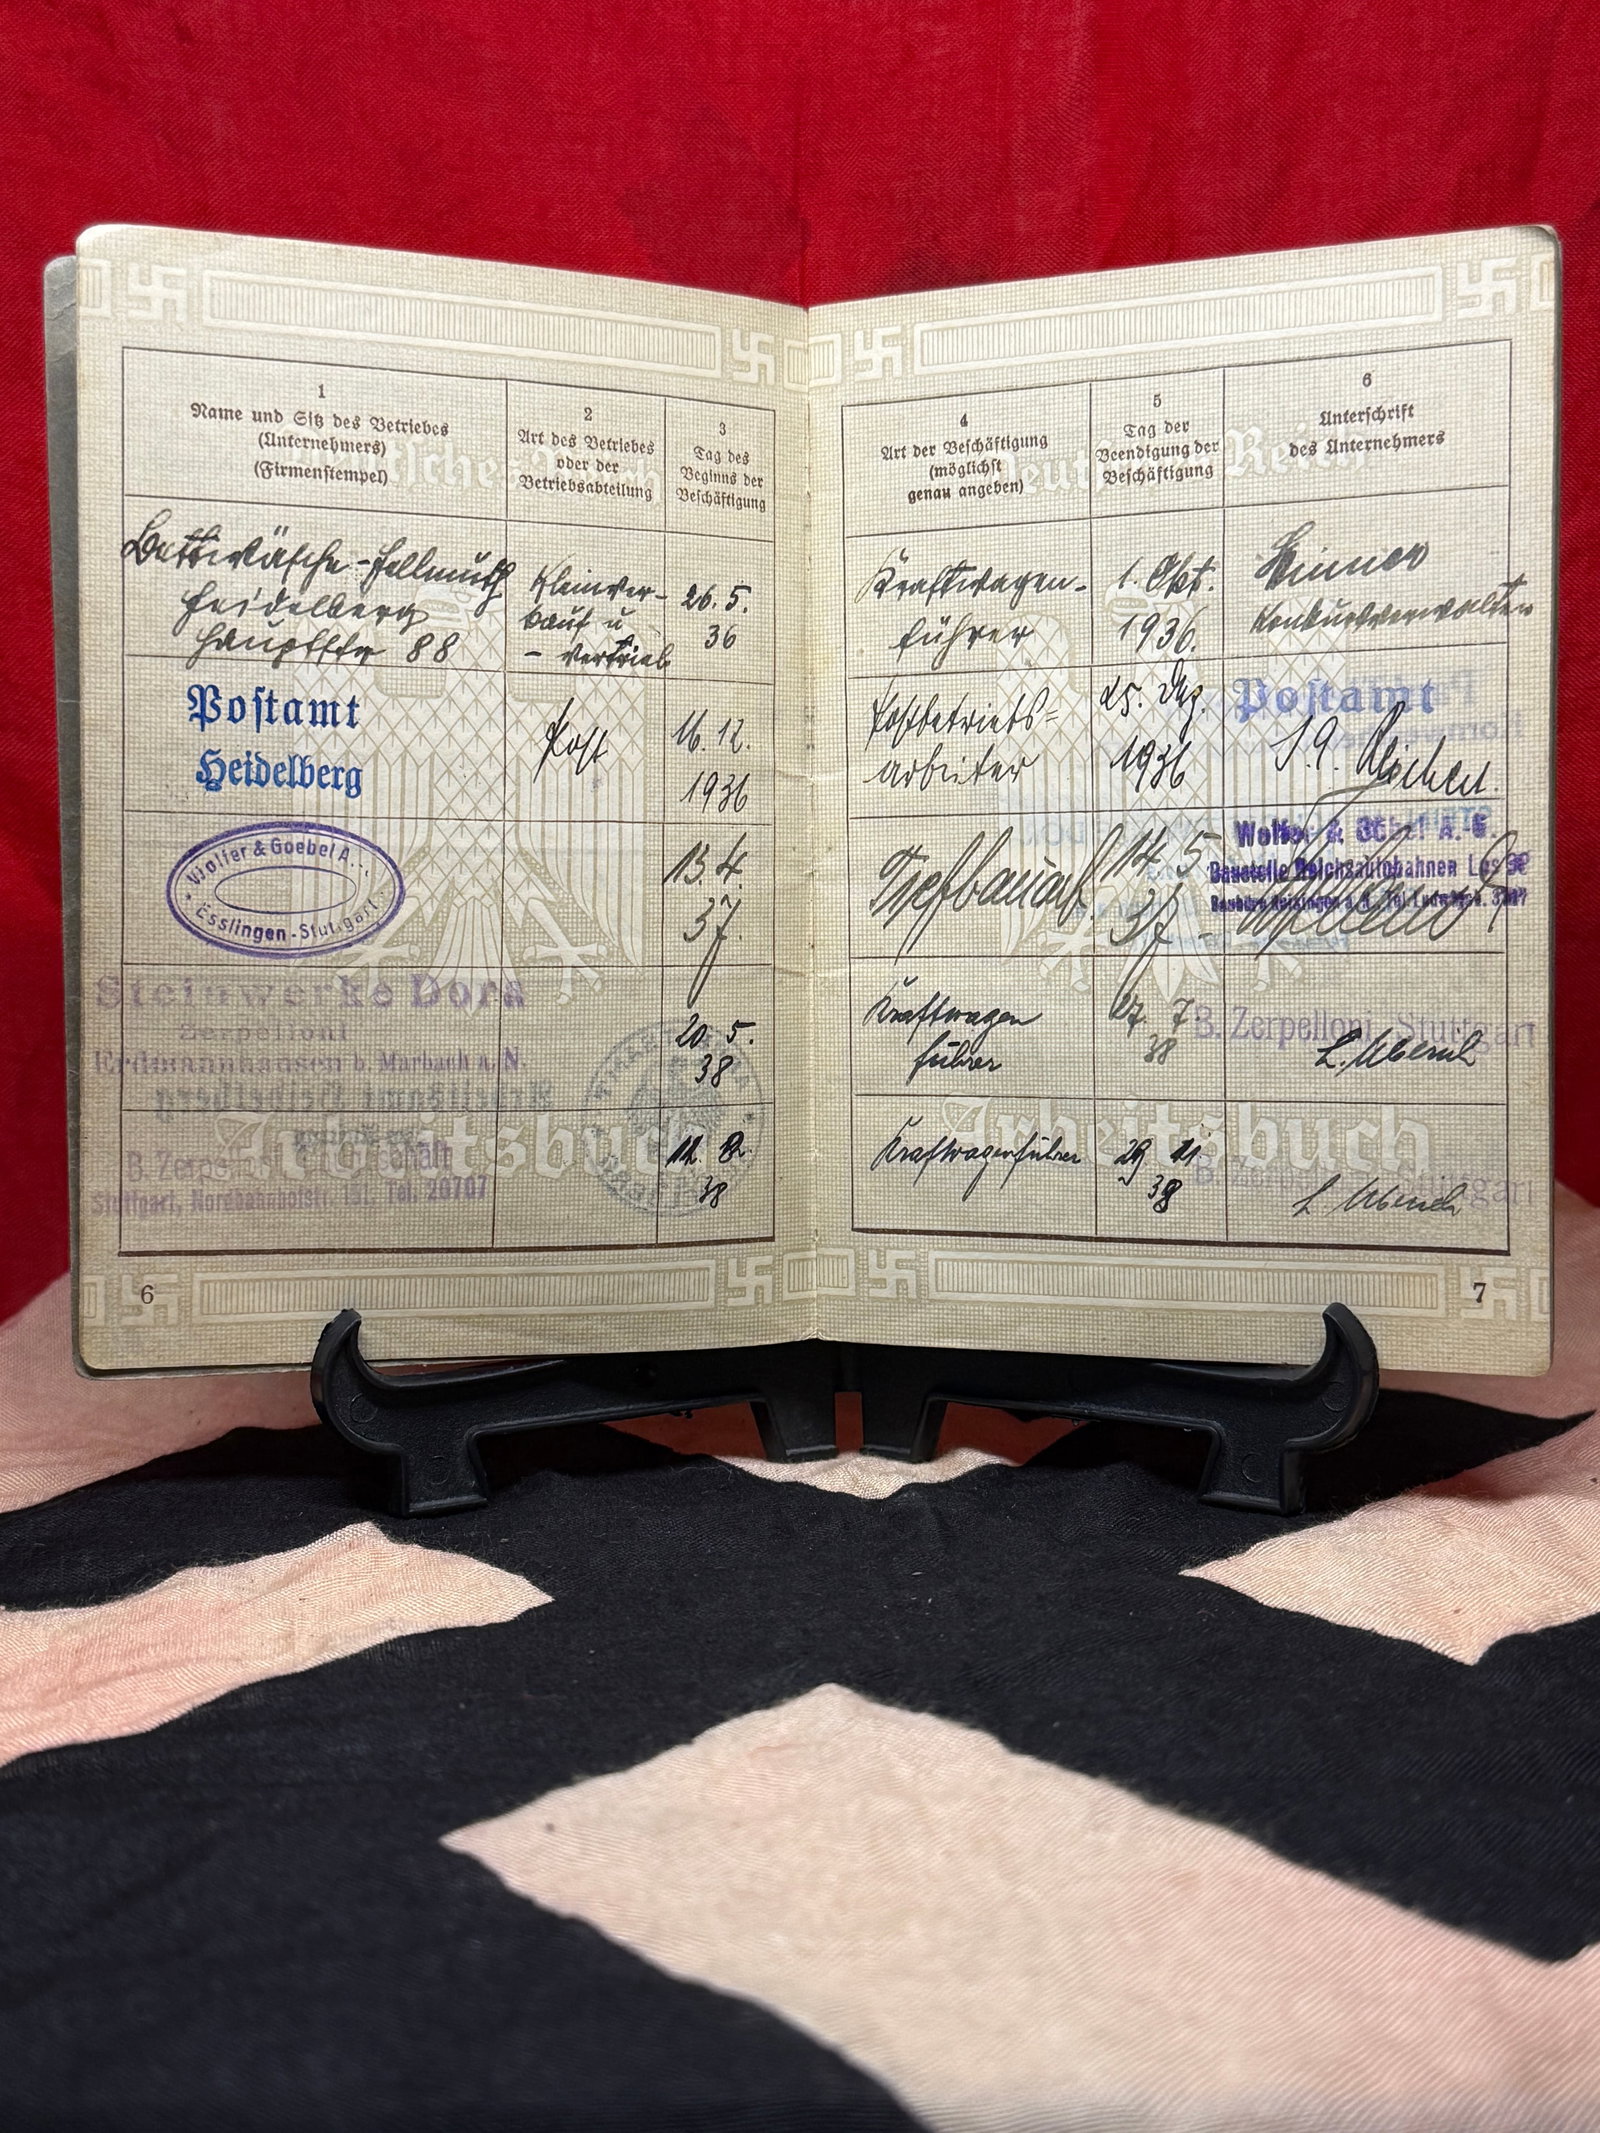 1
Name und Sitz des Betriebes
(Unternehmers)
(Firmenstempel)
2
Art des Betriebes
oder der
Betriebsabteilung
3
Tag des
Beginns der
Beschäftigung
Bettwäsche-Hellmuth
Heidelberg
Hauptstr 88
Kleinver-
kauf u
- vertrieb
26. 5.
36
Postamt
Heidelberg
Post
16. 12.
1936
Wolfer & Goebel A.
Esslingen - Stuttgart
13. 4.
37.
Steinwerke Dora
Zerpelloni
Erdmannhausen b. Marbach a. N.
20. 5.
38
Arbeitsamt Heidelberg
B. Zerpelloni
Stuttgart, Nordbahnhofstr. 151, Tel. 20707
38
Arbeitsbuch
6
4
Art der Beschäftigung
(möglichst
genau angeben)
5
Tag der
Beendigung der
Beschäftigung
6
Unterschrift
des Unternehmers
Deutsches Reich
Kraftwagen-
führer
1. Okt.
1936.
Konkursverwalter
Postbetriebs=
arbeiter
25. Dez.
1936
Postamt
Tiefbauarb.
14. 5
37
Wolfer & Goebel A.-G.
Baustelle Reichsautobahnen
Kraftwagen
führer
27. 7
38
B. Zerpelloni, Stuttgart
Kraftwagenführer
29 11
38
B. Zerpelloni, Stuttgart
Arbeitsbuch
7